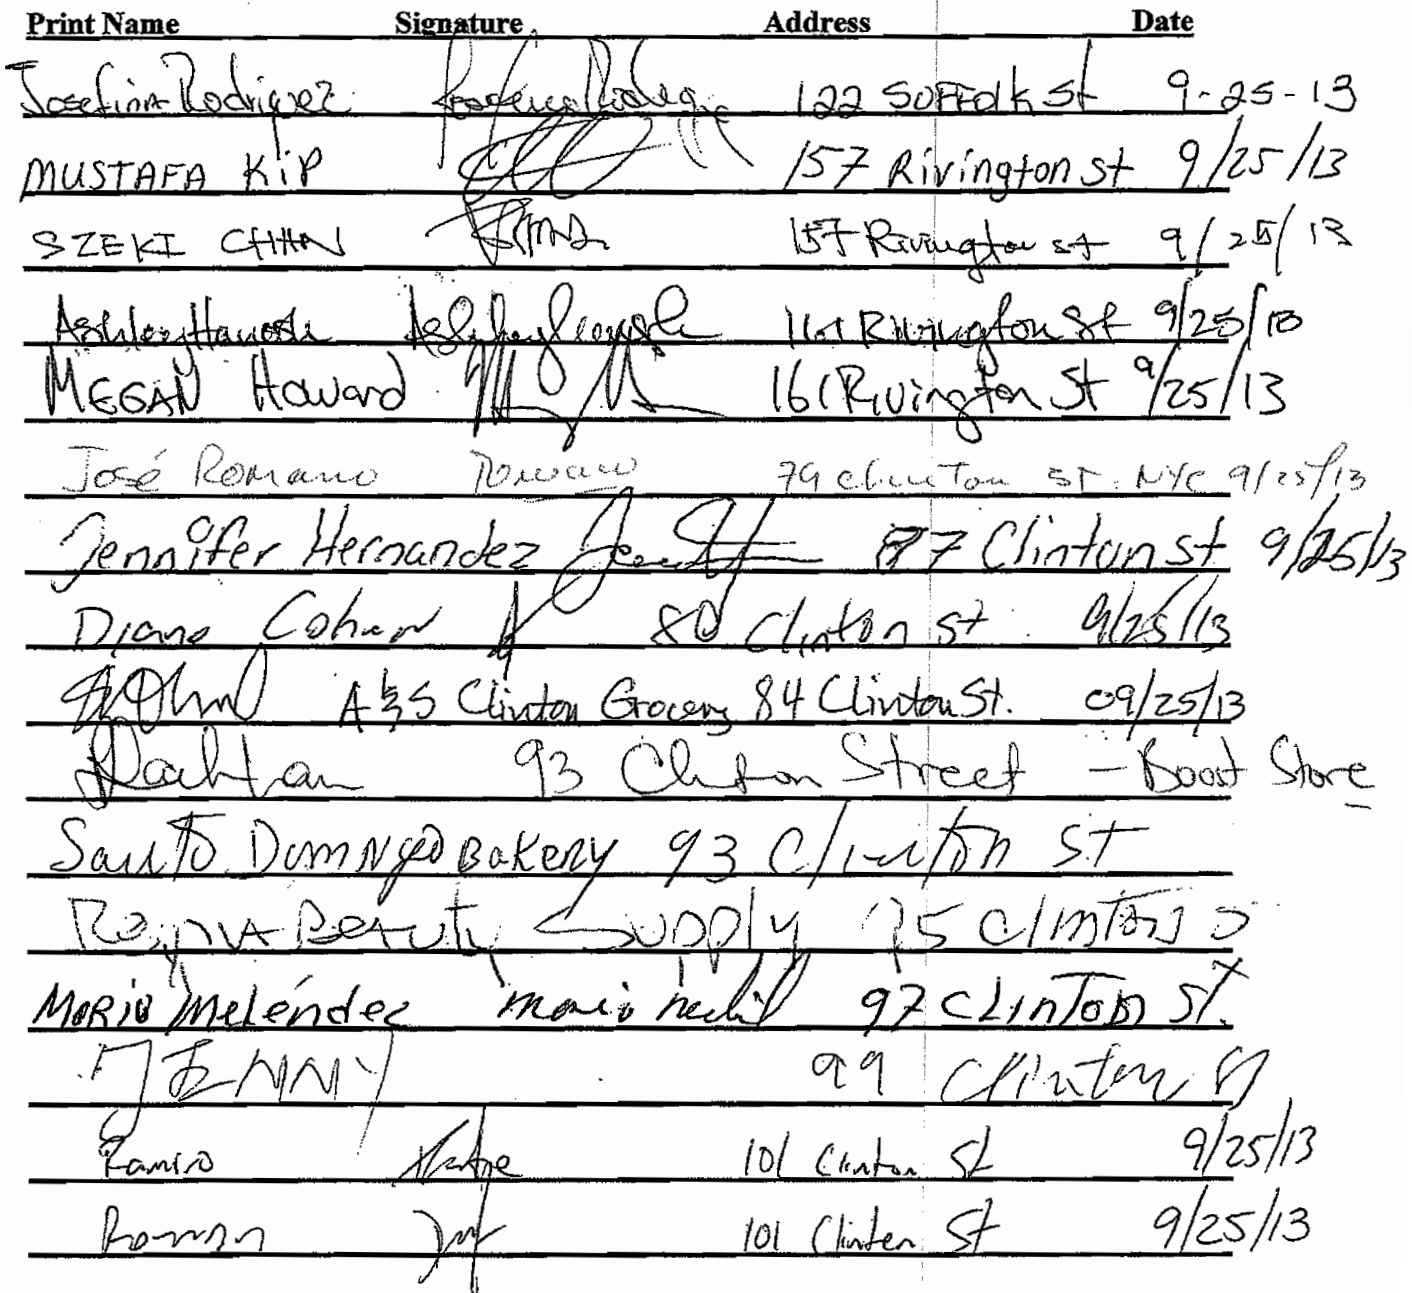 Print Name Signature Address Date
Josefina Rodriguez 122 SOFFOlk St 9-25-13
MUSTAFA KiP 157 Rivington st 9/25/13
SZEKI CHAN 157 Rivington st 9/25/13
Ashley 161 Rivington St 9/25/13
MEGAN Howard 161 Rivington St 9/25/13
José Romano Romano 79 clinton st. NYC 9/25/13
Jennifer Hernandez 77 Clinton st 9/25/13
Diane Cohen 80 Clinton st 9/25/13
A&S Clinton Grocery 84 Clinton St. 09/25/13
93 Clinton Street - Boost Store
Santo Domingo BaKERY 93 Clinton ST
Reyna Beauty Supply 95 Clinton
MARIO Meléndez mario 97 CLINTON ST.
JENNY 99 Clinton St
Ramiro 101 Clinton St 9/25/13
Roman 101 Clinton St 9/25/13